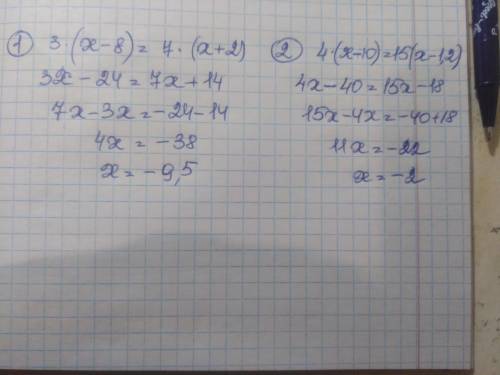 ① 3·(x-8)= 7·(x+2)
3x-24=7x+14
7x-3x=-24-14
4x=-38
x=-9,5
② 4·(x-10)=15(x-12)
4x-40=15x-18
15x-4x=-40+18
11x=-22
x=-2